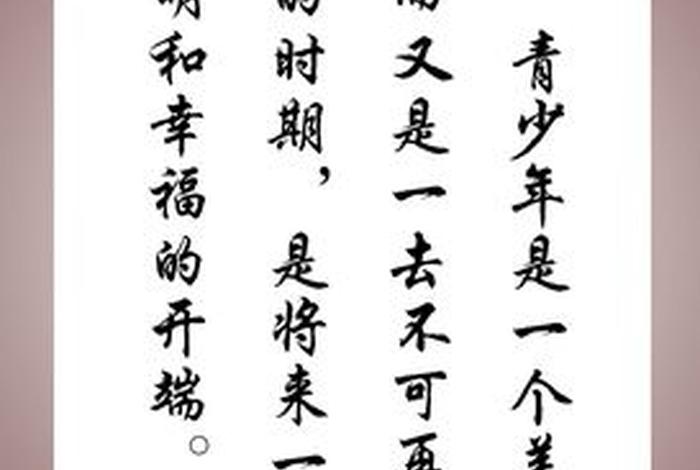 青少年是一个美
而又是一去不可再
的时期，是将来一
明和幸福的开端。